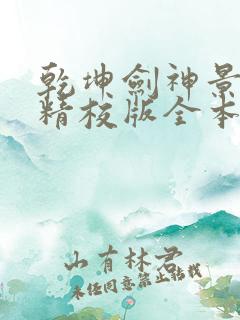 乾坤劍神景
精校版全本
山有林君
未經同意禁止轉載